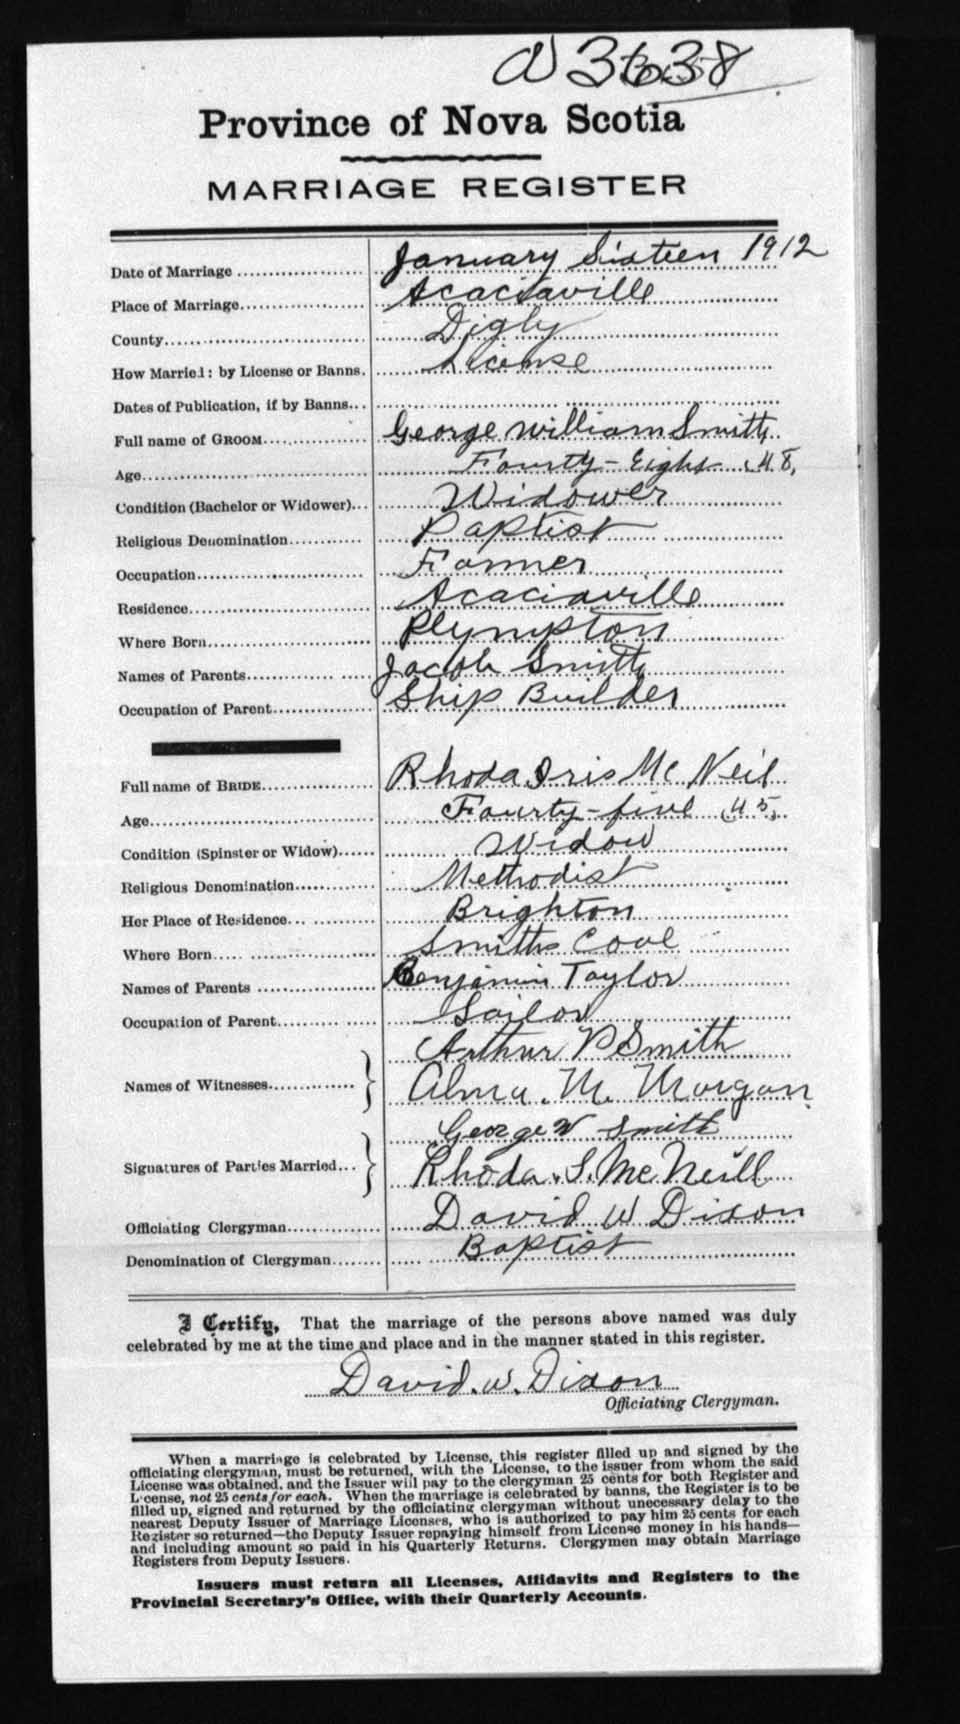 3638
Province of Nova Scotia
MARRIAGE REGISTER
Date of Marriage January Sixteen 1912
Place of Marriage Acaciaville
County Digby
How Married: by License or Banns. License
Dates of Publication, if by Banns
Full name of GROOM George William Smith
Age Fourty-Eight (48)
Condition (Bachelor or Widower) Widower
Religious Denomination Baptist
Occupation Farmer
Residence Acaciaville
Where Born Plympton
Names of Parents Jacob Smith
Occupation of Parent Ship Builder
Full name of BRIDE Rhoda Iris Mc Neil
Age Fourty-five (45)
Condition (Spinster or Widow) Widow
Religious Denomination Methodist
Her Place of Residence Brighton
Where Born Smiths Cove
Names of Parents Benjamin Taylor
Occupation of Parent Sailor
Names of Witnesses Arthur P Smith
Alma. M. Morgan
Signatures of Parties Married George W Smith
Rhoda. I. McNeill
Officiating Clergyman David W Dixon
Denomination of Clergyman Baptist
I Certify, That the marriage of the persons above named was duly
celebrated by me at the time and place and in the manner stated in this register.
David. W. Dixon
Officiating Clergyman.
When a marriage is celebrated by License, this register filled up and signed by the
officiating clergyman, must be returned, with the License, to the issuer from whom the said
License was obtained, and the Issuer will pay to the clergyman 25 cents for both Register and
License, not 25 cents for each. When the marriage is celebrated by banns, the Register is to be
filled up, signed and returned by the officiating clergyman without unnecessary delay to the
nearest Deputy Issuer of Marriage Licenses, who is authorized to pay him 25 cents for each
Register so returned—the Deputy Issuer repaying himself from License money in his hands—
and including amount so paid in his Quarterly Returns. Clergymen may obtain Marriage
Registers from Deputy Issuers.
Issuers must return all Licenses, Affidavits and Registers to the
Provincial Secretary's Office, with their Quarterly Accounts.